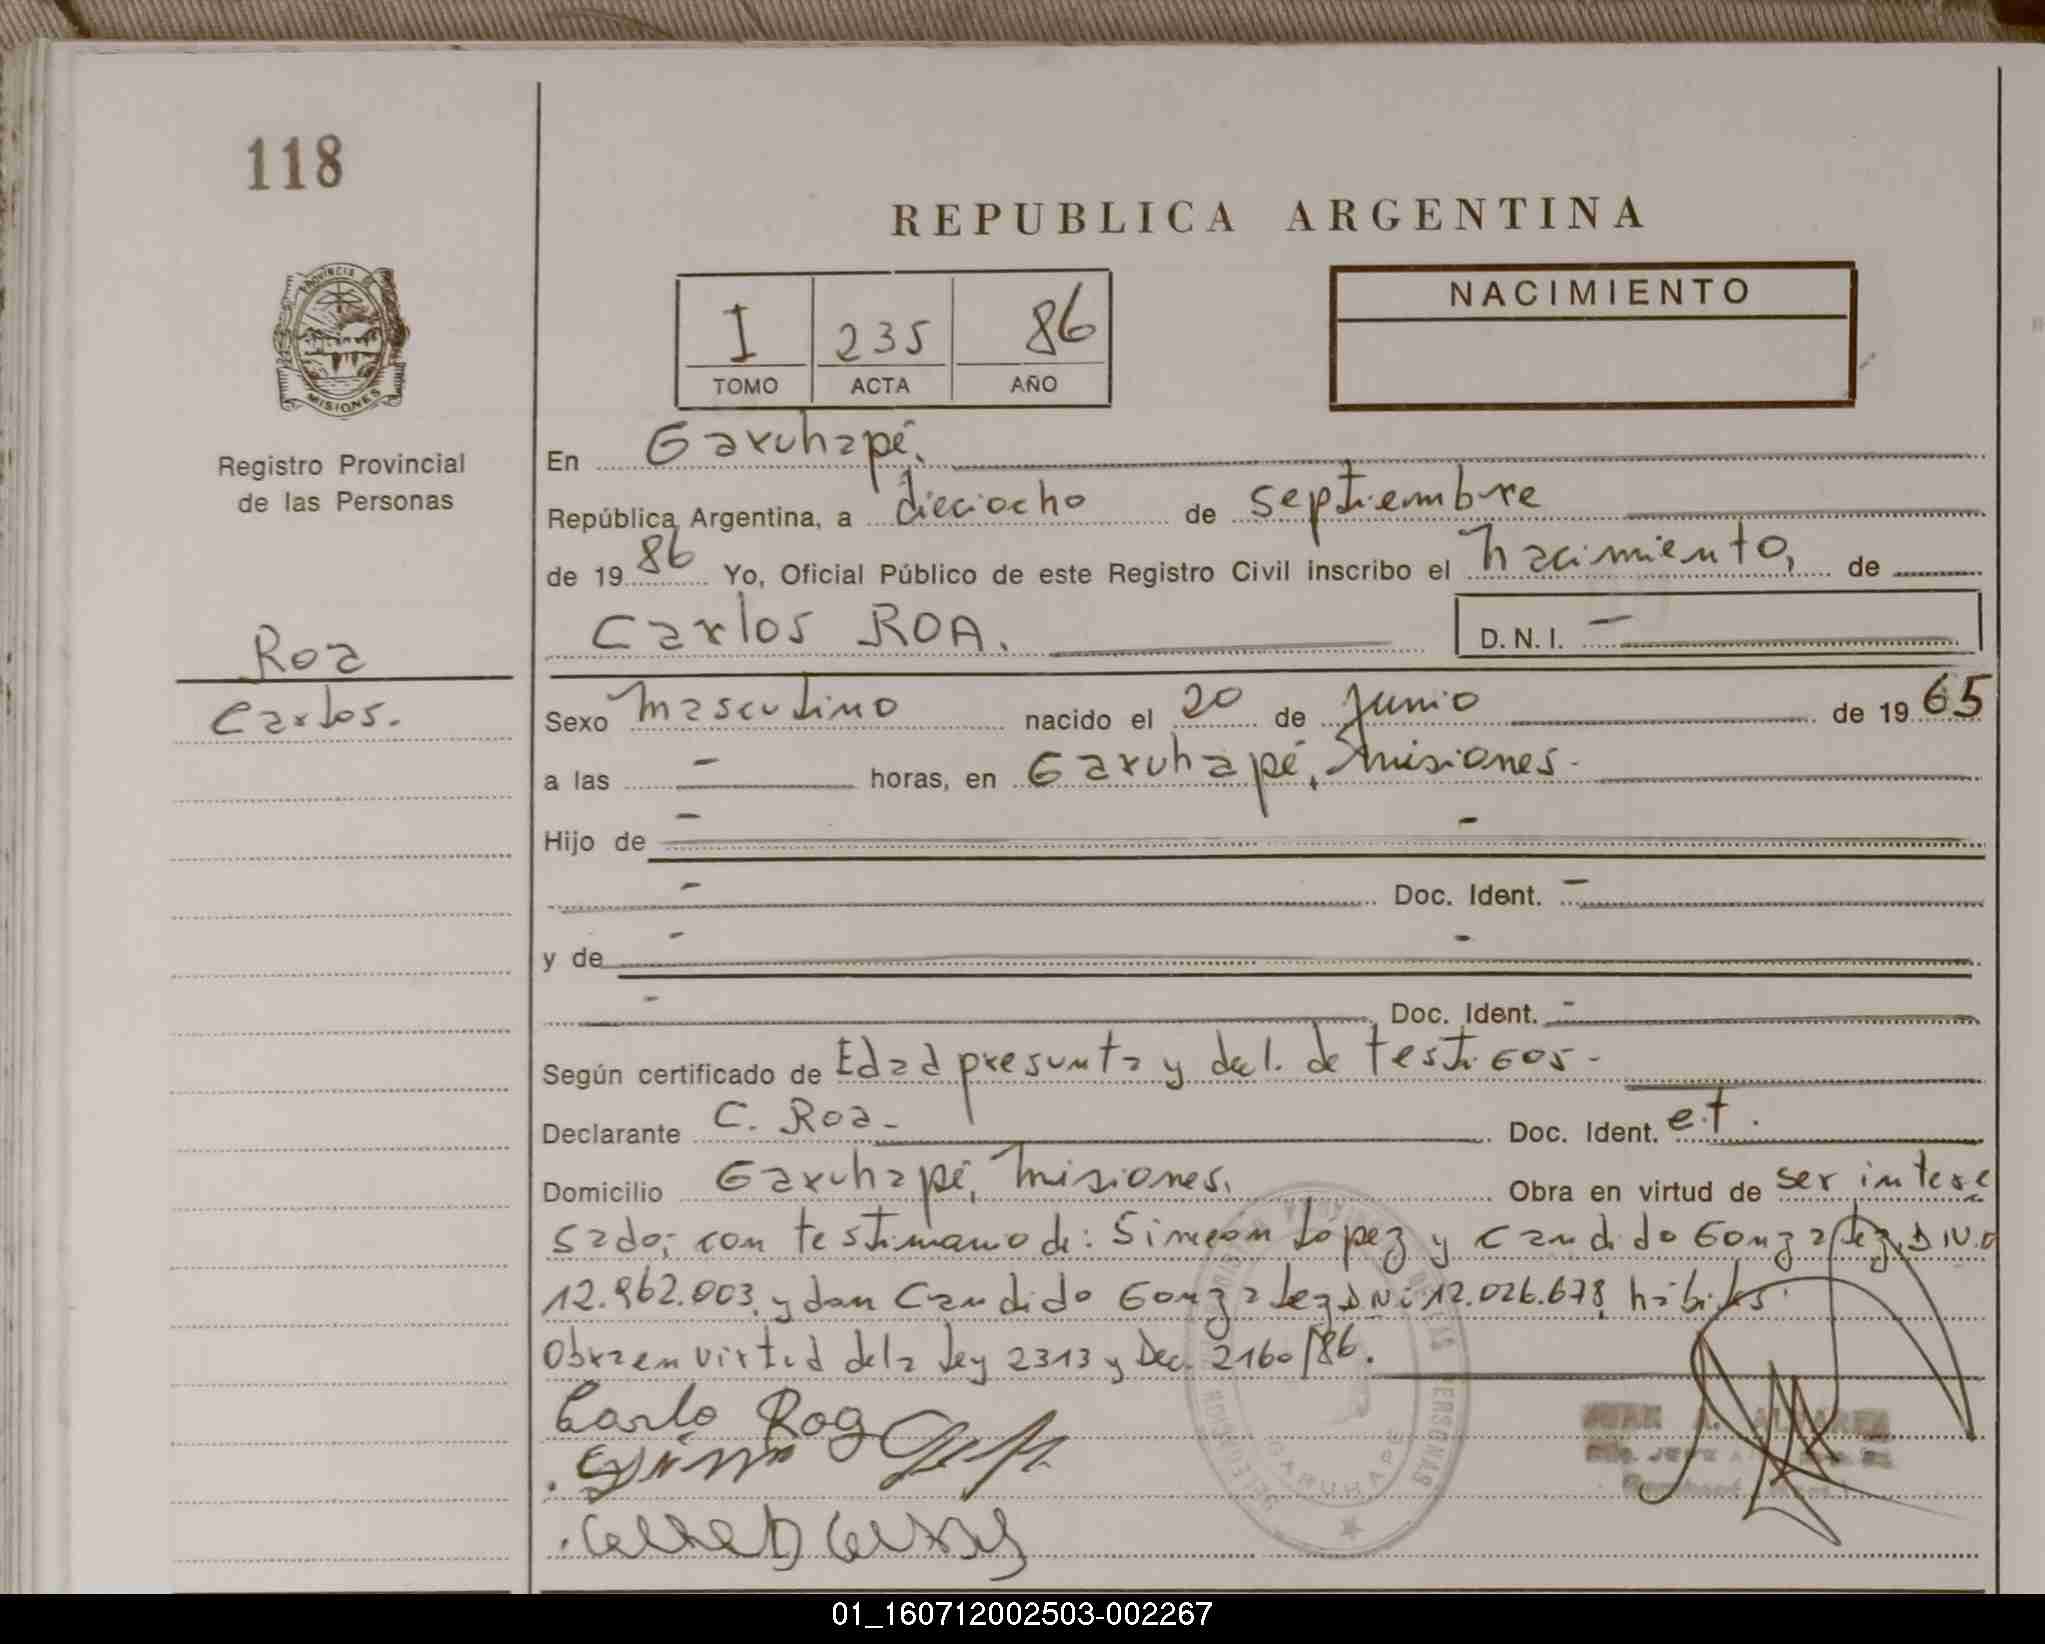 118
REPUBLICA ARGENTINA
PROVINCIA DE
MISIONES
Registro Provincial
de las Personas
I 235 86
TOMO ACTA AÑO
NACIMIENTO
En Garuhapé,
República Argentina, a dieciocho de septiembre
de 1986 Yo, Oficial Público de este Registro Civil inscribo el nacimiento, de
Carlos ROA.
D. N. I. –
Roa
Carlos.
Sexo masculino nacido el 20 de Junio de 1965
a las – horas, en Garuhapé, misiones.-
Hijo de – –
– Doc. Ident. –
y de – –
– Doc. Ident. –
Según certificado de Edad presunta y decl. de testigos-
Declarante C. Roa- Doc. Ident. e.t.
Domicilio Garuhapé, misiones. Obra en virtud de ser intere
sado; con testimonio de: Simeon Lopez y Candido Gonzalez,
12.962.003, y don Candido Gonzalez DNi 12.026.678, hábiles.
Obra en virtud de la Ley 2313 y Dec. 2160/86.
Carlo Roa
GARUHAPE
01_160712002503-002267